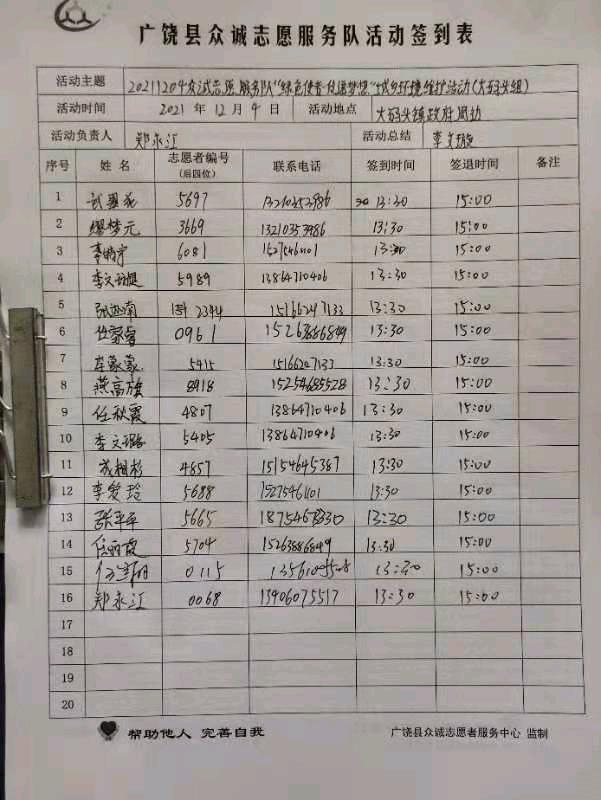 广饶县众诚志愿服务队活动签到表
活动主题 20211204众诚志愿服务队"绿色使者 放逐梦想"城乡环境维护活动(大码头组)
活动时间 2021年12月4日 活动地点 大码头镇政府周边
活动负责人 郑永江 活动总结 李文璇
序号 姓名 志愿者编号(后四位) 联系电话 签到时间 签退时间 备注
1 5697 13210353986 13:30 15:00
2 缪梦元 3669 13210353986 13:30 15:00
3 6081 13:30 15:00
4 5989 13864710406 13:30 15:00
5 张迦南 2394 15166247133 13:30 15:00
6 0961 15263886849 13:30 15:00
7 5415 15166247133 13:30 15:00
8 燕高旗 8918 15254685528 13:30 15:00
9 任秋霞 4807 13864710406 13:30 15:00
10 李文璐 5405 13864710406 13:30 15:00
11 成相杉 4857 15154645387 13:30 15:00
12 李爱玲 5688 15275461101 13:30 15:00
13 张平平 5665 13:30 15:00
14 任丽霞 5704 15263886849 13:30 15:00
15 0115 15:00
16 郑永江 0068 13906075517 13:30 15:00
17
18
19
20
帮助他人 完善自我 广饶县众诚志愿者服务中心 监制